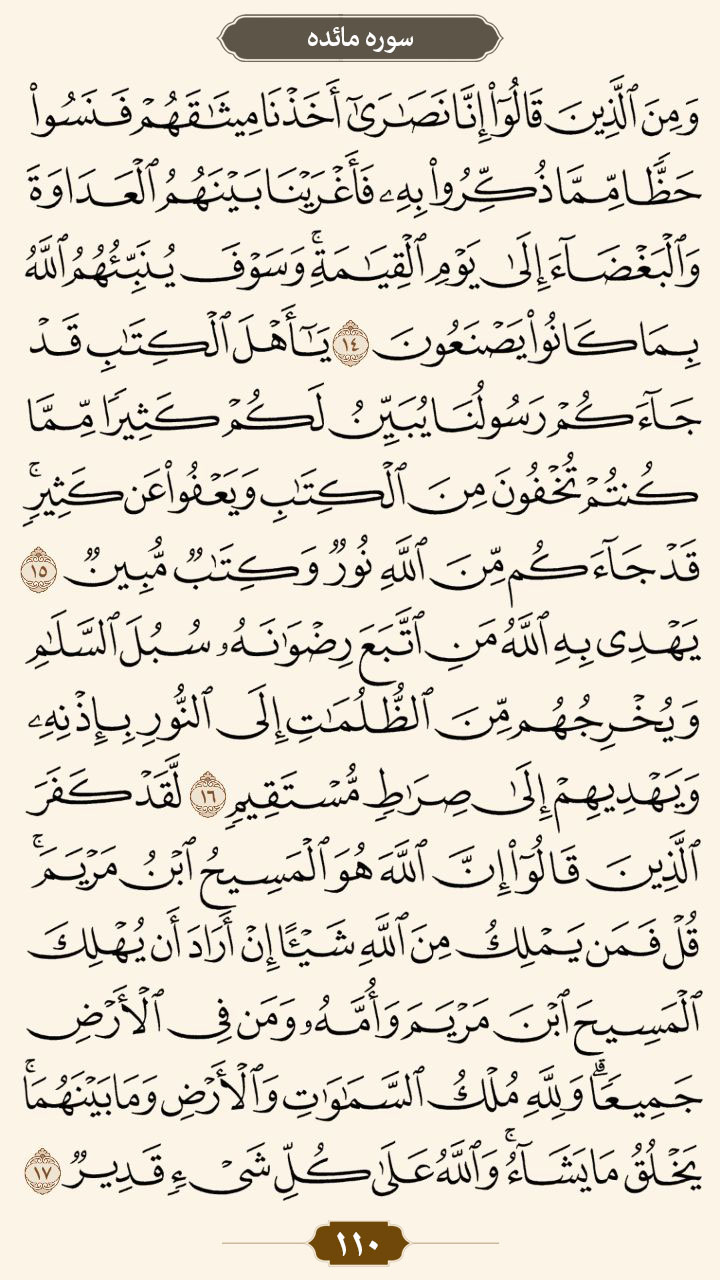 سوره مائده
وَمِنَ ٱلَّذِينَ قَالُوٓا۟ إِنَّا نَصَٰرَىٰٓ أَخَذْنَا مِيثَٰقَهُمْ فَنَسُوا۟
حَظًّا مِّمَّا ذُكِّرُوا۟ بِهِۦ فَأَغْرَيْنَا بَيْنَهُمُ ٱلْعَدَاوَةَ
وَٱلْبَغْضَآءَ إِلَىٰ يَوْمِ ٱلْقِيَٰمَةِ ۚ وَسَوْفَ يُنَبِّئُهُمُ ٱللَّهُ
بِمَا كَانُوا۟ يَصْنَعُونَ ١٤ يَٰٓأَهْلَ ٱلْكِتَٰبِ قَدْ
جَآءَكُمْ رَسُولُنَا يُبَيِّنُ لَكُمْ كَثِيرًا مِّمَّا
كُنتُمْ تُخْفُونَ مِنَ ٱلْكِتَٰبِ وَيَعْفُوا۟ عَن كَثِيرٍ ۚ
قَدْ جَآءَكُم مِّنَ ٱللَّهِ نُورٌ وَكِتَٰبٌ مُّبِينٌ ١٥
يَهْدِى بِهِ ٱللَّهُ مَنِ ٱتَّبَعَ رِضْوَٰنَهُۥ سُبُلَ ٱلسَّلَٰمِ
وَيُخْرِجُهُم مِّنَ ٱلظُّلُمَٰتِ إِلَى ٱلنُّورِ بِإِذْنِهِۦ
وَيَهْدِيهِمْ إِلَىٰ صِرَٰطٍ مُّسْتَقِيمٍ ١٦ لَّقَدْ كَفَرَ
ٱلَّذِينَ قَالُوٓا۟ إِنَّ ٱللَّهَ هُوَ ٱلْمَسِيحُ ٱبْنُ مَرْيَمَ ۚ
قُلْ فَمَن يَمْلِكُ مِنَ ٱللَّهِ شَيْـًٔا إِنْ أَرَادَ أَن يُهْلِكَ
ٱلْمَسِيحَ ٱبْنَ مَرْيَمَ وَأُمَّهُۥ وَمَن فِى ٱلْأَرْضِ
جَمِيعًا ۗ وَلِلَّهِ مُلْكُ ٱلسَّمَٰوَٰتِ وَٱلْأَرْضِ وَمَا بَيْنَهُمَا ۚ
يَخْلُقُ مَا يَشَآءُ ۚ وَٱللَّهُ عَلَىٰ كُلِّ شَىْءٍ قَدِيرٌ ١٧
١١٠